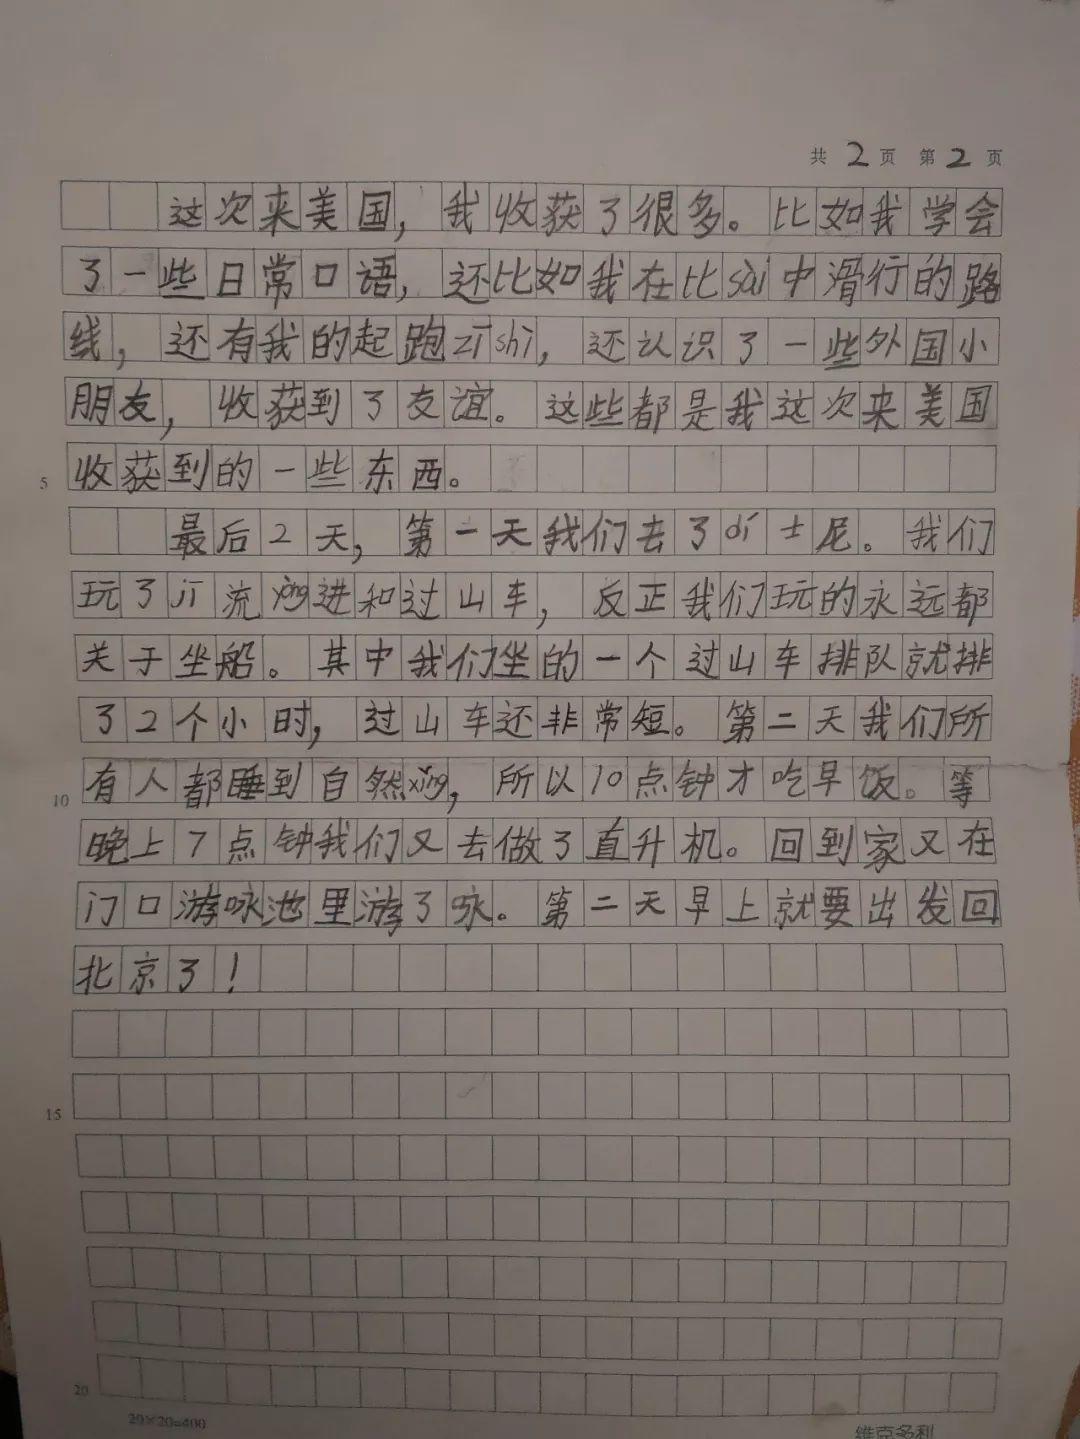 共2页 第2页
这次来美国，我收获了很多。比如我学会
了一些日常口语，还比如我在比sài中滑行的路
线，还有我的起跑zī shì，还认识了一些外国小
朋友，收获到了友谊。这些都是我这次来美国
5 收获到的一些东西。
最后2天，第一天我们去了dí士尼。我们
玩了jī流yǒng进和过山车，反正我们玩的永远都
关于坐船。其中我们坐的一个过山车排队就排
了2个小时，过山车还非常短。第二天我们所
10 有人都睡到自然xǐng，所以10点钟才吃早饭。等
晚上7点钟我们又去做了直升机。回到家又在
门口游咏池里游了咏。第二天早上就要出发回
北京了！
15
20
20×20=400
维克多利